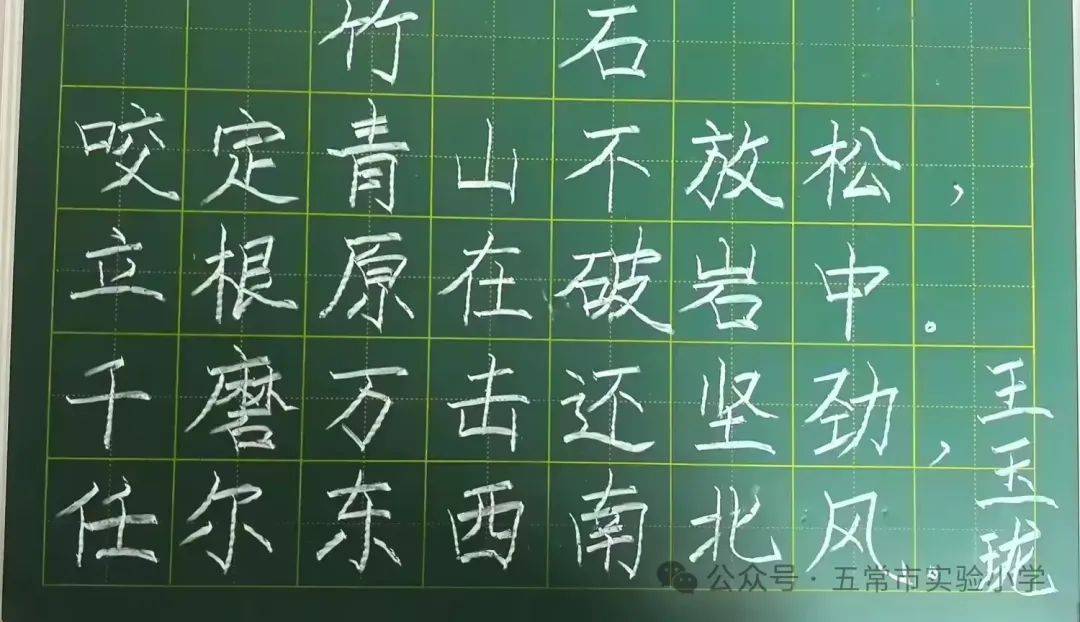 竹石
咬定青山不放松，
立根原在破岩中。
千磨万击还坚劲，
任尔东西南北风。
王玉珑
公众号·五常市实验小学